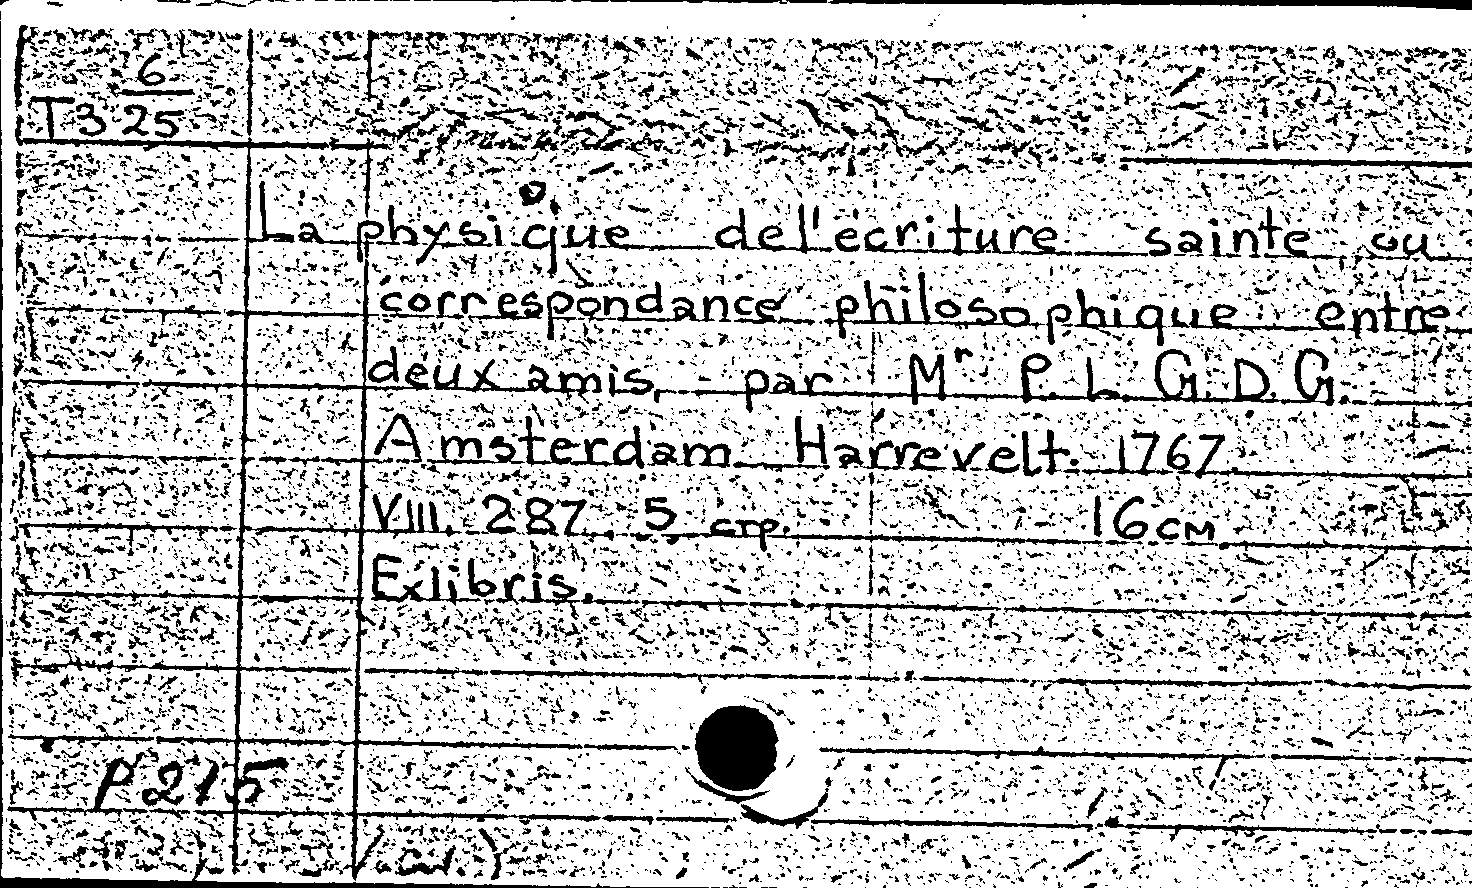 6
T3 25
La physique de l'ecriture sainte ou
correspondance philosophique entre
deux amis, par Mr P. L. G. D. G.
Amsterdam Harrevelt. 1767.
VIII. 287. 5 стр. 16см
Exlibris.
P215